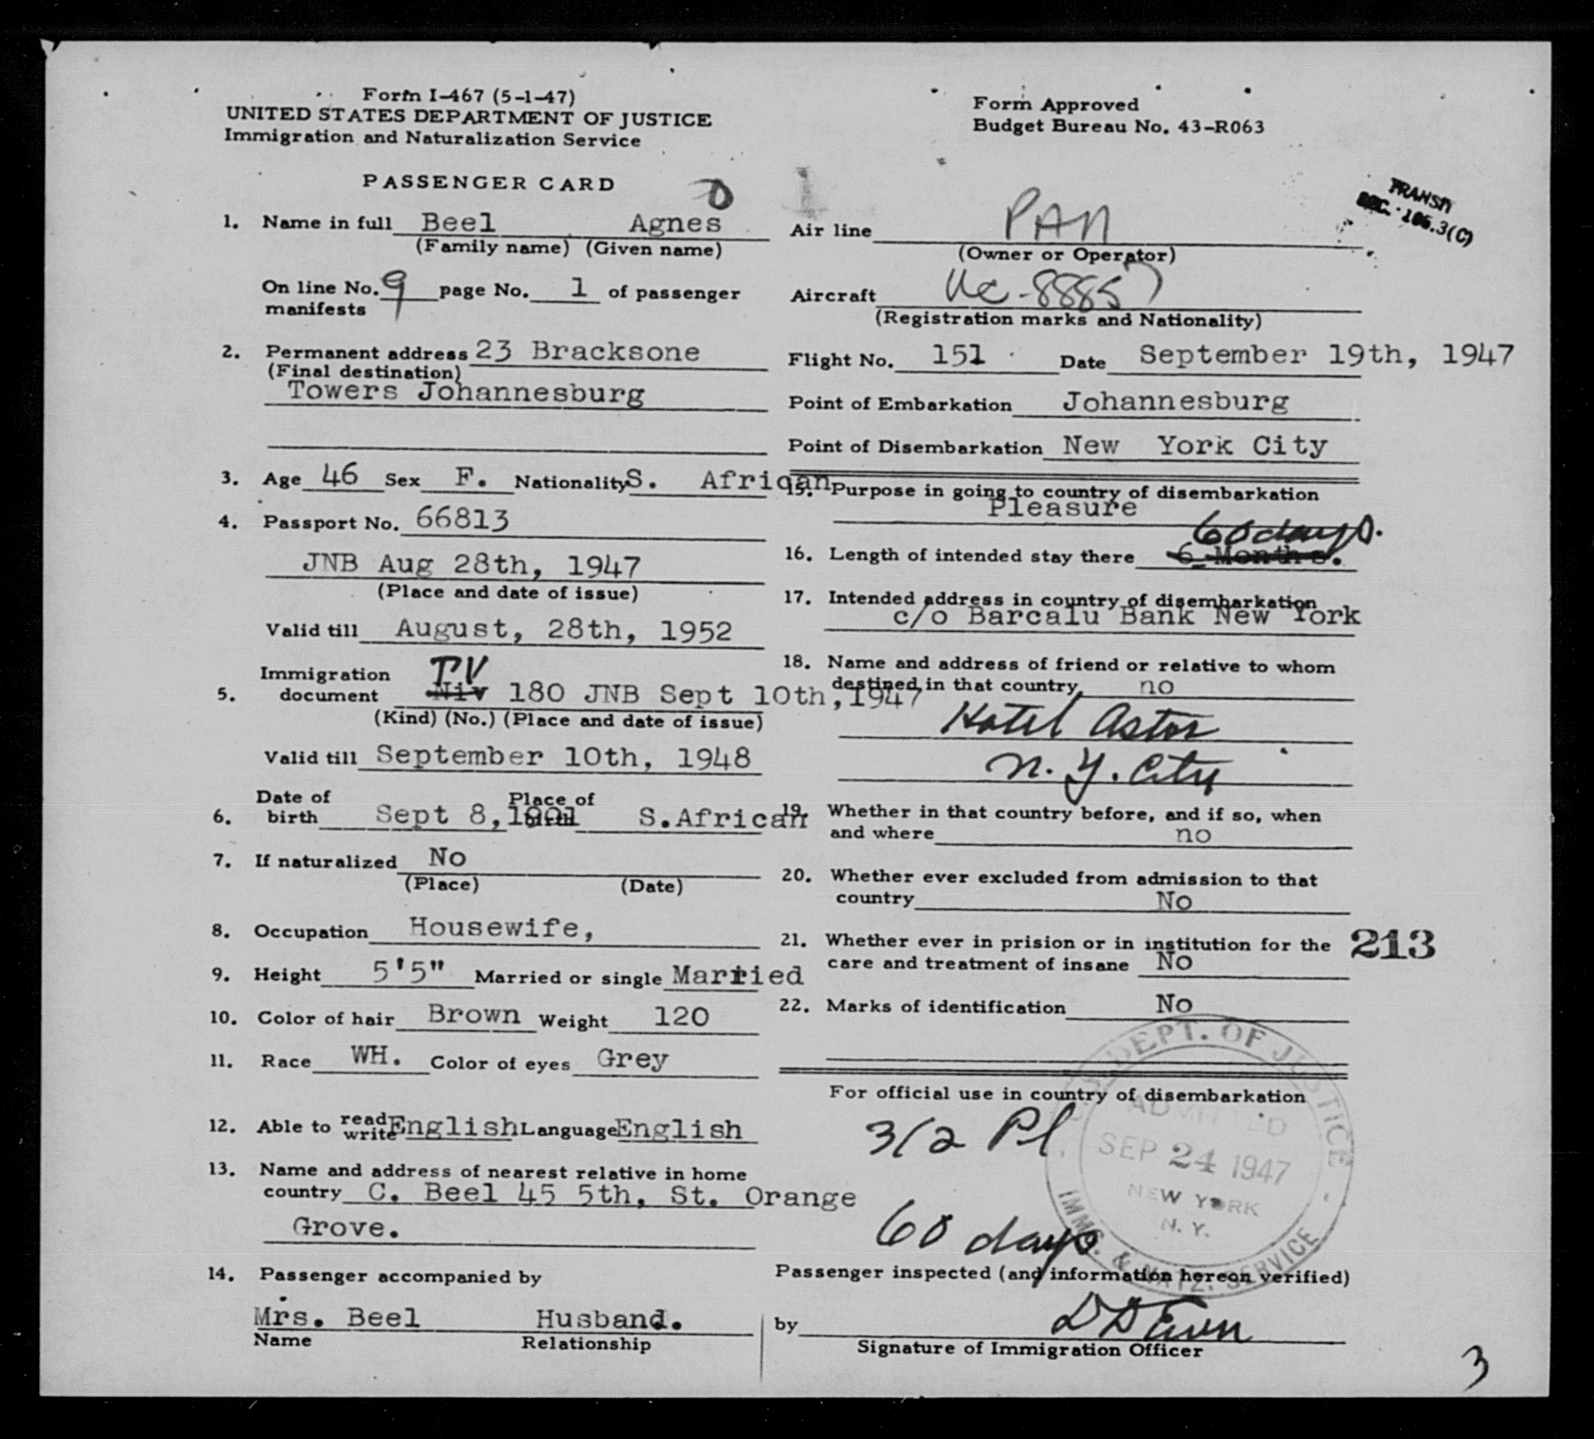 Form I-467 (5-1-47)
UNITED STATES DEPARTMENT OF JUSTICE
Immigration and Naturalization Service
Form Approved
Budget Bureau No. 43-R063
PASSENGER CARD
1. Name in full Beel Agnes
(Family name) (Given name)
On line No. 9 page No. 1 of passenger
manifests
2. Permanent address 23 Bracksone
(Final destination)
Towers Johannesburg
3. Age 46 Sex F. Nationality S. African
4. Passport No. 66813
JNB Aug 28th, 1947
(Place and date of issue)
Valid till August, 28th, 1952
Immigration TV
5. document Niv 180 JNB Sept 10th, 1947
(Kind) (No.) (Place and date of issue)
Valid till September 10th, 1948
Date of Place of
6. birth Sept 8, 1901 birth S.African
7. If naturalized No
(Place) (Date)
8. Occupation Housewife,
9. Height 5'5" Married or single Married
10. Color of hair Brown Weight 120
11. Race WH. Color of eyes Grey
12. Able to read write English Language English
13. Name and address of nearest relative in home
country C. Beel 45 5th, St. Orange
Grove.
14. Passenger accompanied by
Mrs. Beel Husband.
Name Relationship
TRANSIT
SEC. 106.3(C)
Air line PAN
(Owner or Operator)
Aircraft NC-88857
(Registration marks and Nationality)
Flight No. 151 Date September 19th, 1947
Point of Embarkation Johannesburg
Point of Disembarkation New York City
15. Purpose in going to country of disembarkation
Pleasure
60 days.
16. Length of intended stay there 6 Months.
17. Intended address in country of disembarkation
c/o Barcalu Bank New York
18. Name and address of friend or relative to whom
destined in that country no
Hotel Astor
N. Y. City
19. Whether in that country before, and if so, when
and where no
20. Whether ever excluded from admission to that
country No
21. Whether ever in prision or in institution for the
care and treatment of insane No
213
22. Marks of identification No
For official use in country of disembarkation
3/2 Pl
60 days
U.S. DEPT. OF JUSTICE
ADMITTED
SEP 24 1947
NEW YORK
N. Y.
IMMG. & NATZ. SERVICE
Passenger inspected (and information hereon verified)
by
Signature of Immigration Officer
3